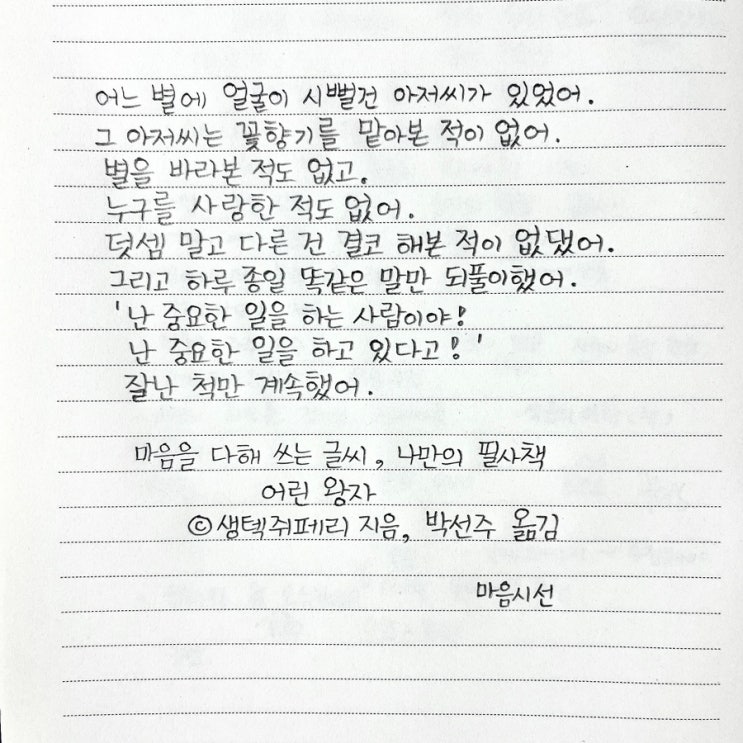 어느 별에 얼굴이 시뻘건 아저씨가 있었어.
그 아저씨는 꽃향기를 맡아본 적이 없어.
별을 바라본 적도 없고,
누구를 사랑한 적도 없어.
덧셈 말고 다른 건 결코 해본 적이 없댔어.
그리고 하루 종일 똑같은 말만 되풀이했어.
'난 중요한 일을 하는 사람이야!
난 중요한 일을 하고 있다고!'
잘난 척만 계속했어.
마음을 다해 쓰는 글씨, 나만의 필사책
어린 왕자
©생텍쥐페리 지음, 박선주 옮김
마음시선